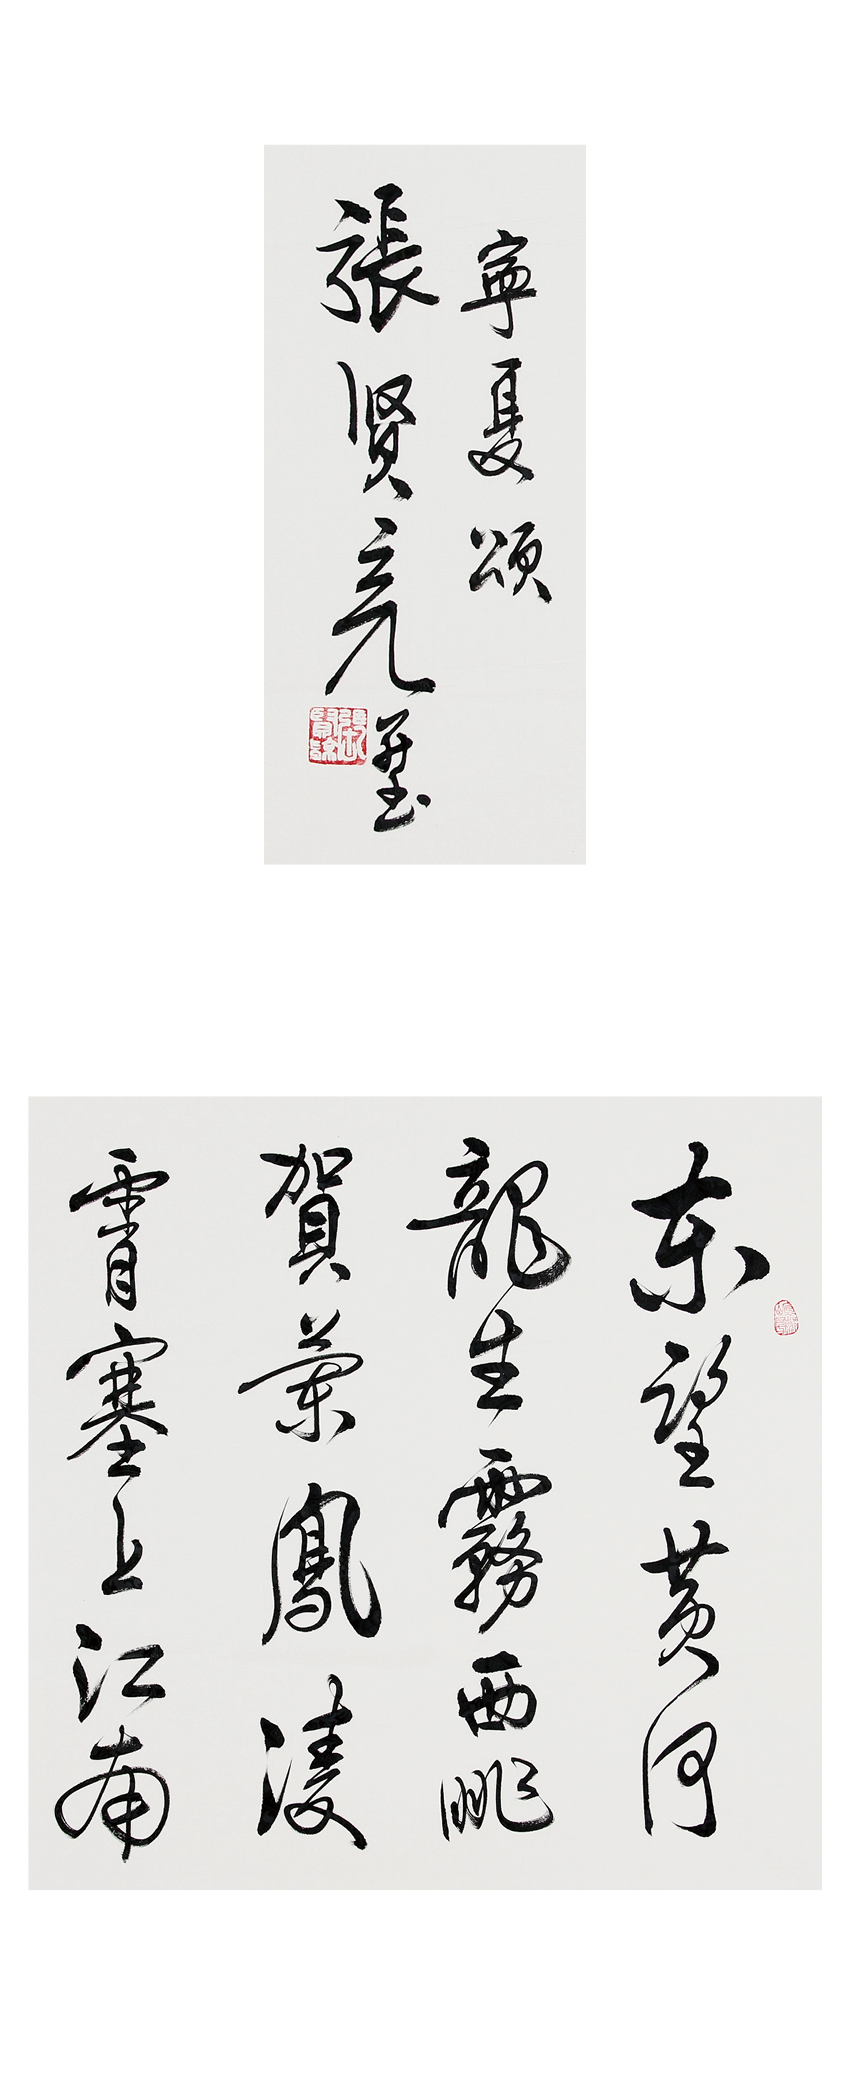 寧夏頌
張贤亮
东望黄河
龍生霧西眺
賀蘭鳳凌
霄塞上江南